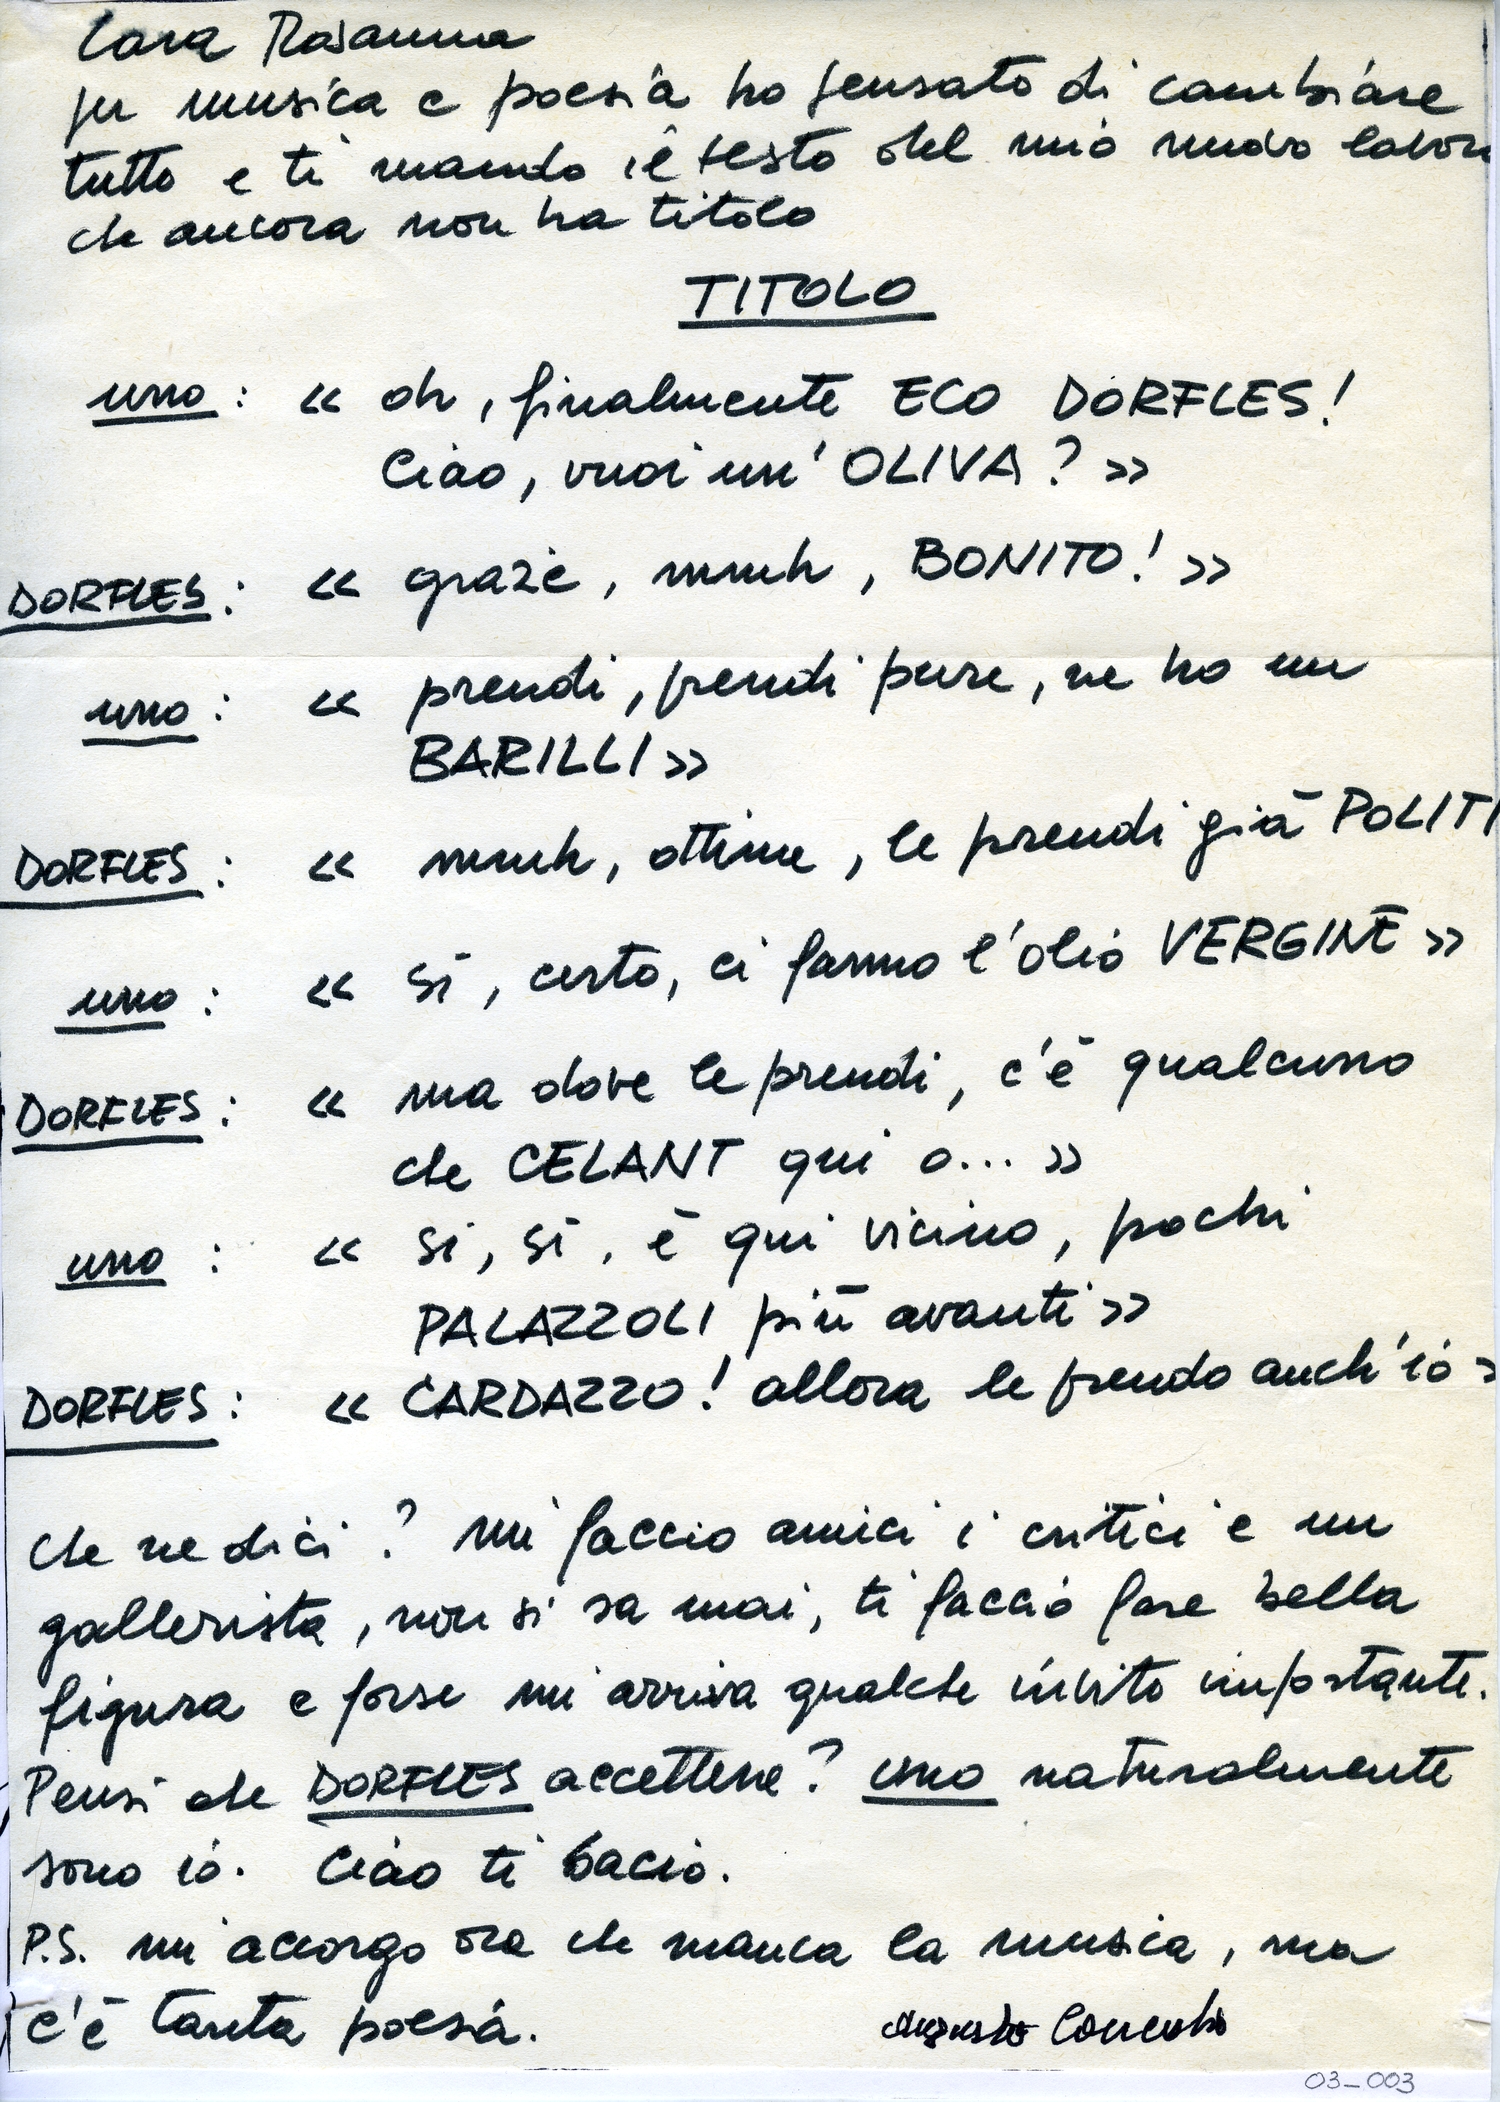 Cara Rosanna
per musica e poesia ho pensato di cambiare
tutto e ti mando il testo del mio nuovo lavoro
che ancora non ha titolo
TITOLO
uno: « oh, finalmente ECO DORFLES!
Ciao, vuoi un' OLIVA? »
DORFLES: « grazie, mmh, BONITO! »
uno: « prendi, prendi pure, ne ho un
BARILLI »
DORFLES: « mmh, ottime, le prendi già POLITI
uno: « sì, certo, ci fanno l'olio VERGINE »
DORFLES: « ma dove le prendi, c'è qualcuno
che CELANT qui o... »
uno: « sì, sì, è qui vicino, pochi
PALAZZOLI più avanti »
DORFLES: « CARDAZZO! allora le prendo anch'io »
Che ne dici? mi faccio amici i critici e un
gallerista, non si sa mai, ti faccio fare bella
figura e forse mi arriva qualche invito importante.
Pensi che DORFLES accetterà? uno naturalmente
sono io. Ciao ti bacio.
P.S. mi accorgo ora che manca la musica, ma
c'è tanta poesia.
Augusto Concato
03_003